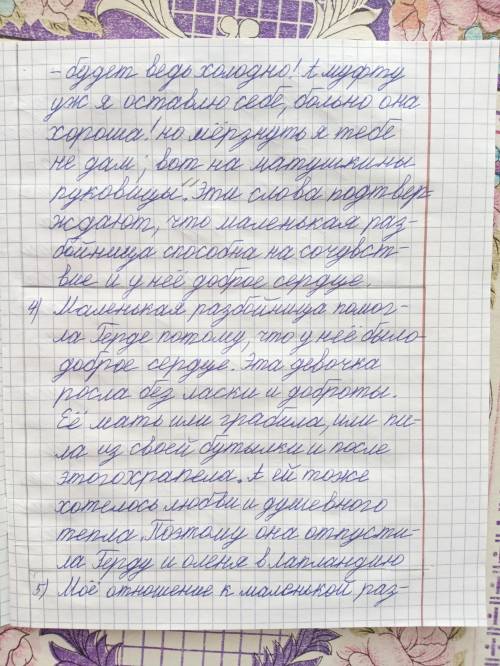 - будет ведь холодно! А муфту
уж я оставлю себе, больно она
хороша! но мёрзнуть я тебе
не дам; вот на матушкины
руковицы". Эти слова подтвер-
ждают, что маленькая раз-
бойница способна на сочувст-
вие и у неё доброе сердце.
4) Маленькая разбойница помог-
ла Герде потому, что у неё было
доброе сердце. Эта девочка
росла без ласки и доброты.
Её мать или грабила, или пи-
ла из своей бутылки и после
этого храпела. А ей тоже
хотелось любви и душевного
тепла. Поэтому она отпусти-
ла Герду и оленя в Лапландию
5) Моё отношение к маленькой раз-